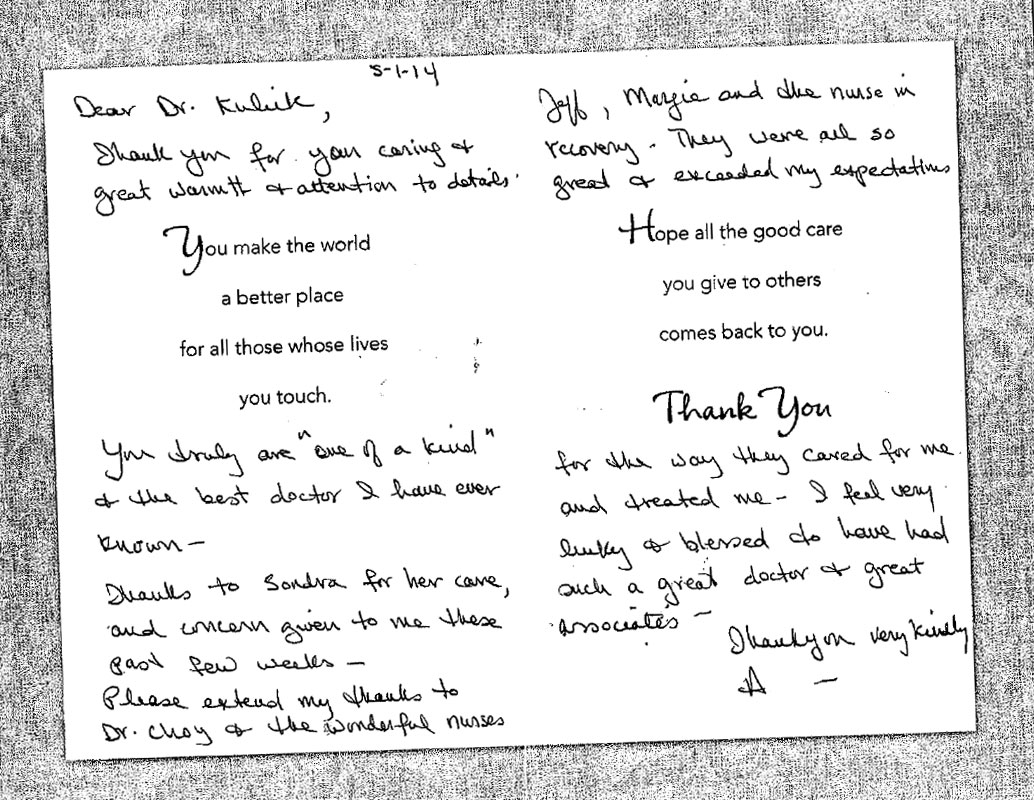 5-1-14
Dear Dr. Kulick,
Thank you for your caring &
great warmth & attention to details.
You make the world
a better place
for all those whose lives
you touch.
You truly are "one of a kind"
& the best doctor I have ever
known —
Thanks to Sondra for her care,
and concern given to me these
past few weeks —
Please extend my thanks to
Dr. Choy & the wonderful nurses
Jeff, Margie and the nurse in
recovery. They were all so
great & exceeded my expectations
Hope all the good care
you give to others
comes back to you.
Thank You
for the way they cared for me
and treated me - I feel very
lucky & blessed to have had
such a great doctor & great
associates —
Thank you very kindly
A —